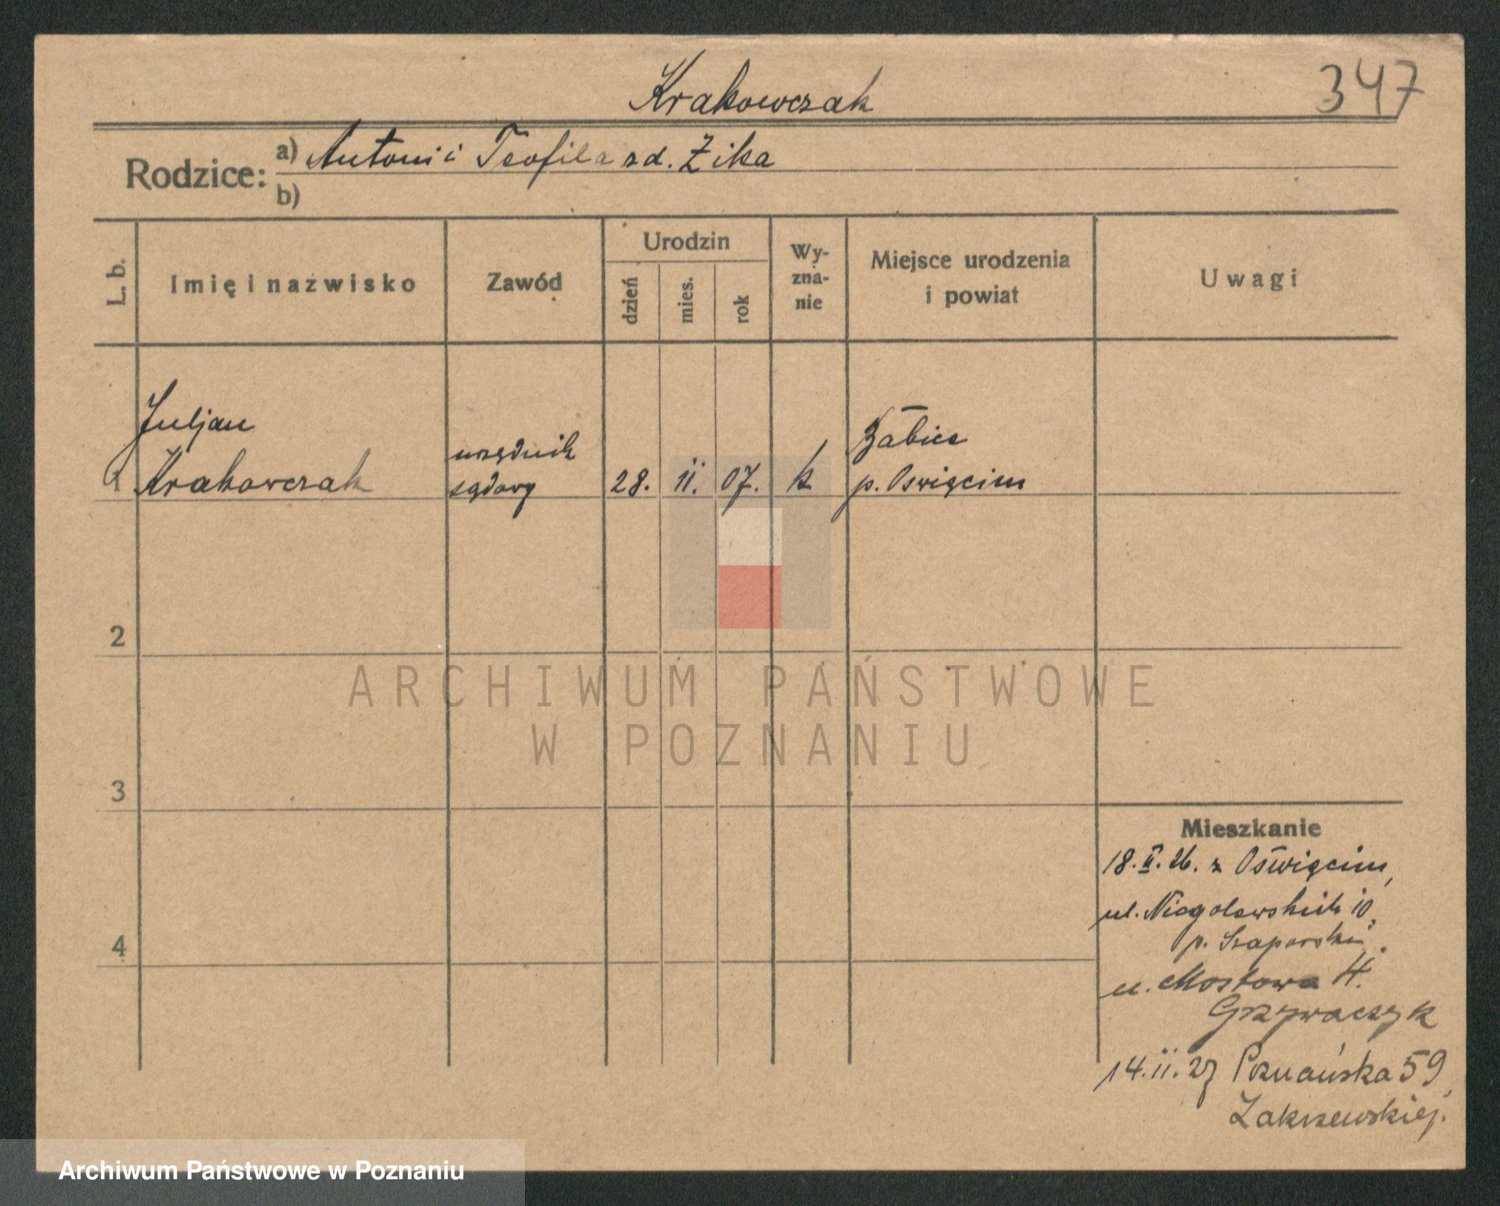 347
Krakowczak
Rodzice: a) Antoni i Teofila zd. Żika
b)
L. b. Imię i nazwisko Zawód Urodzin dzień mies. rok Wy-zna-nie Miejsce urodzenia i powiat Uwagi
Juljan urzędnik Żabice
1 Krakowczak sądowy 28. II. 07. k p. Oswięcim
2
3
4
Mieszkanie
18. II. 26. z Oświęcim,
ul. Niegolewskich 10.
p.
ul. Mostowa 4.
Grzywaczyk
14. II. 27 Poznańska 59
Zakrzewskiej.
ARCHIWUM PAŃSTWOWE
W POZNANIU
Archiwum Państwowe w Poznaniu